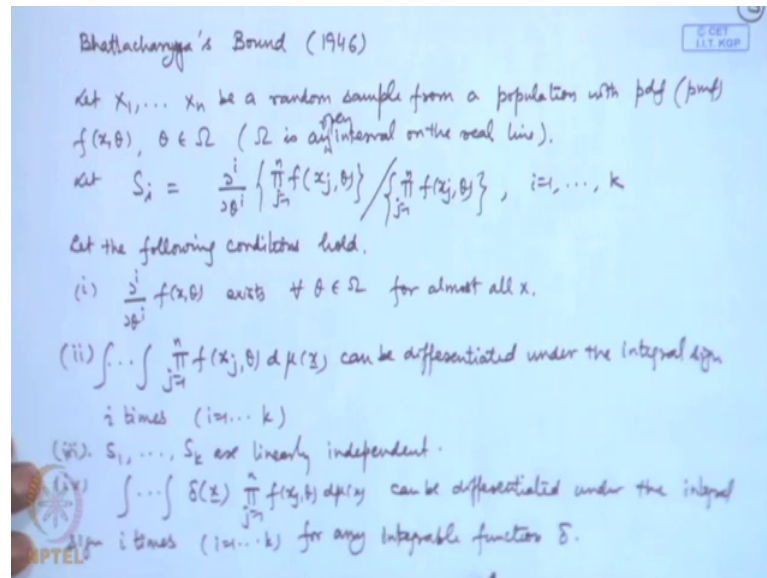 © CET
I.I.T. KGP
Bhattacharyya's Bound (1946)
Let X₁, ... Xₙ be a random sample from a population with pdf (pmf)
f(x,θ), θ ∈ Ω (Ω is an open interval on the real line).
Let Sᵢ = ∂ⁱ/∂θⁱ { ∏ⱼ₌₁ⁿ f(xⱼ,θ) } / { ∏ⱼ₌₁ⁿ f(xⱼ,θ) }, i=1, ..., k
Let the following conditions hold.
(i) ∂ⁱ/∂θⁱ f(x,θ) exists ∀ θ ∈ Ω for almost all x.
(ii) ∫...∫ ∏ⱼ₌₁ⁿ f(xⱼ,θ) dμ(x) can be differentiated under the integral sign
i times (i=1...k)
(iii). S₁, ..., Sₖ are linearly independent.
(iv) ∫...∫ δ(x) ∏ⱼ₌₁ⁿ f(xⱼ,θ) dμ(x) can be differentiated under the integral
sign i times (i=1...k) for any integrable function δ.
NPTEL